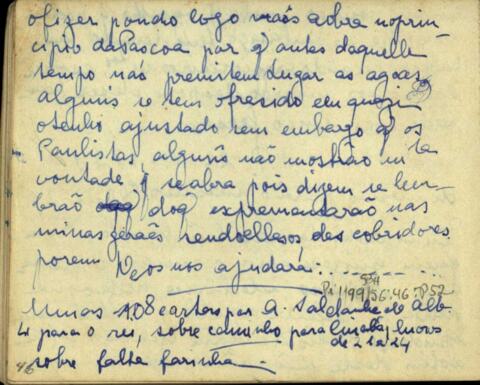 ofizer pondo logo maõs aobra noprin-
cipio da Pascoa por q̃ antes daquelle
tempo naõ premitem lugar as agoas
alguñs se tem ofresido e en quazi
otenho ajustado sem embargo q̃ os
Paulistas, alguñs naõ mostraõ mta
vontade q̃ se abra pois dizem se lem-
braõ doq̃ expremantaraõ nas
minas geraes sendo elles os descobridores
porem Deos nos ajudará:
Minas 108 cartas por A. Saldanha de Alb-
para o rei, sobre caminho para Cuiabá, Livros
de 21 a 24
sobre falta farinha.
46